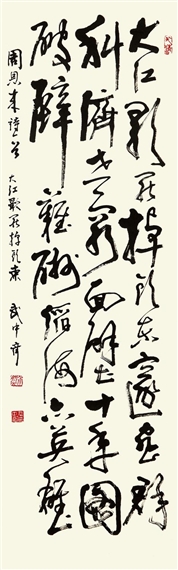 大江歌罢掉头东邃密群
科济世穷面壁十年图
破壁难酬蹈海亦英雄
周恩来诗一首 大江歌罢掉头东 武中奇